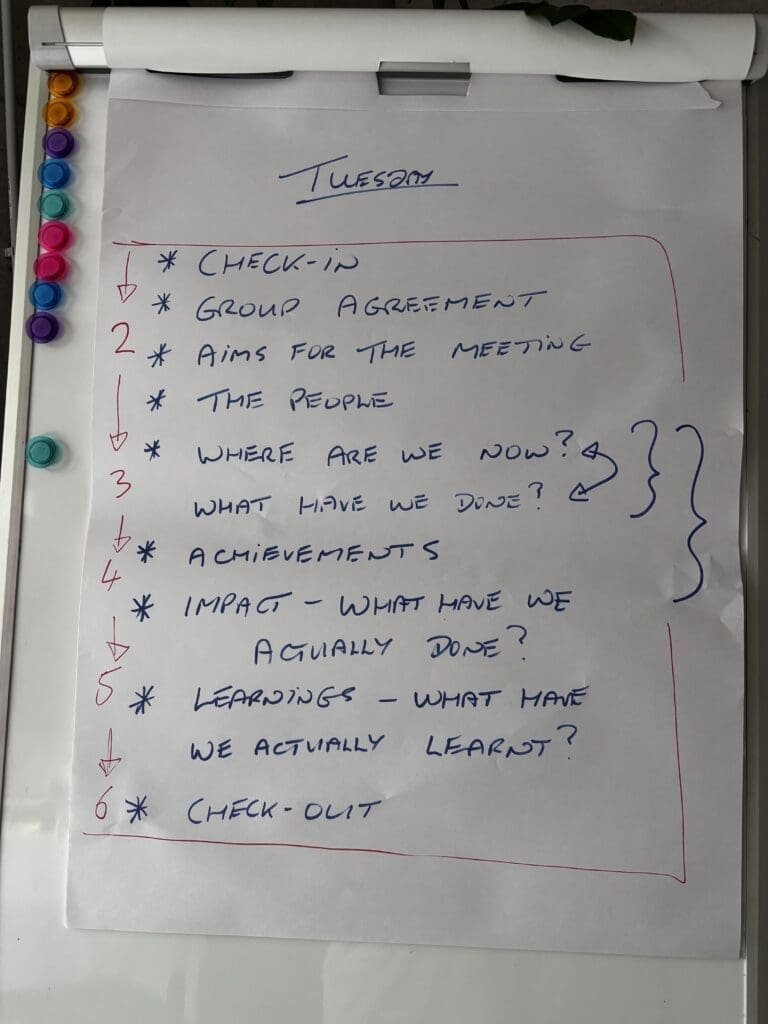 TUESDAY
* CHECK-IN
* GROUP AGREEMENT
2
* AIMS FOR THE MEETING
* THE PEOPLE
* WHERE ARE WE NOW?
3
WHAT HAVE WE DONE?
* ACHIEVEMENTS
4
* IMPACT - WHAT HAVE WE
ACTUALLY DONE?
5 * LEARNINGS - WHAT HAVE
WE ACTUALLY LEARNT?
6 * CHECK-OUT